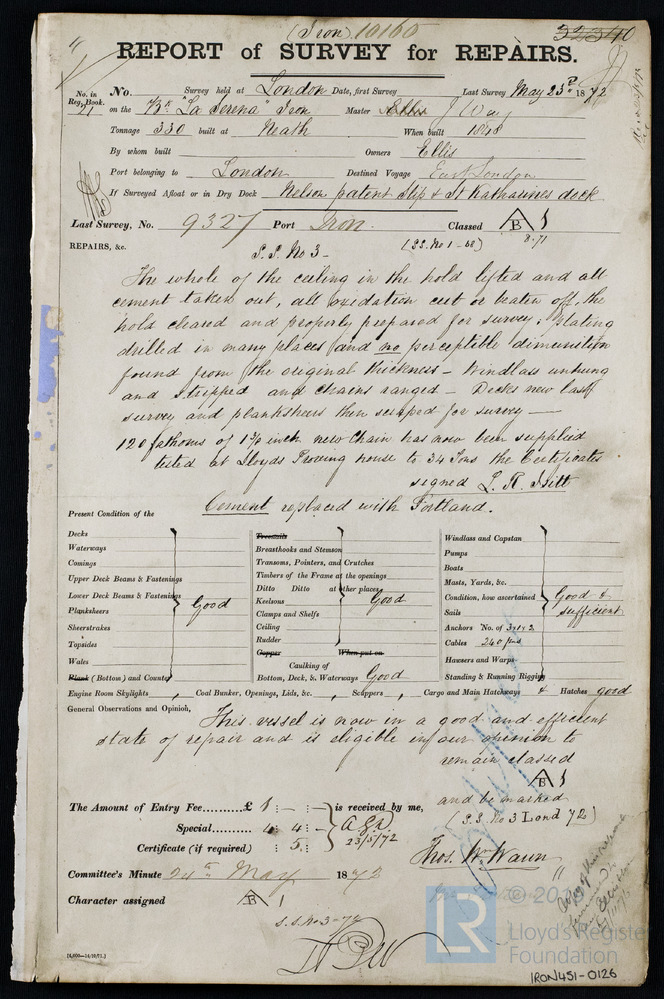 (Iron) 10165
REPORT of SURVEY for REPAIRS.
No. in Reg. Book. 21
No. Survey held at London Date, first Survey Last Survey May 23rd 1872
on the Bk "La Serena" Iron Master Ellis J Way
Tonnage 330 built at Neath When built 1848
By whom built Owners Ellis
Port belonging to London Destined Voyage East London
If Surveyed Afloat or in Dry Dock Nelson patent Slip & St Katharines dock
Last Survey, No. 9327 Port Iron Classed A B 1
8.71
REPAIRS, &c. S.S. No 3 - (S.S. No 1 - 68)
The whole of the ceiling in the hold lifted and all
cement taken out, all oxidation cut or beaten off, the
hold cleared and properly prepared for survey; Plating
drilled in many places and no perceptible diminution
found from the original thickness - Windlass unhung
and stripped and chains ranged - Decks new last
survey and plankshears then scraped for survey -
120 fathoms of 1 3/16 inch new Chain has now been supplied
tested at Lloyds Proving house to 34 Tons the Certificates
signed
Cement replaced with Portland.
Present Condition of the
Decks
Waterways
Comings
Upper Deck Beams & Fastenings
Lower Deck Beams & Fastenings
Good
Planksheers
Sheerstrakes
Topsides
Wales
Plank (Bottom) and Counter
Treenails
Breasthooks and Stemson
Transoms, Pointers, and Crutches
Timbers of the Frame at the openings
Ditto Ditto at other places
Keelsons Good
Clamps and Shelfs
Ceiling
Rudder
Copper When put on
Caulking of
Bottom, Deck, & Waterways Good
Windlass and Capstan
Pumps
Boats
Masts, Yards, &c.
Condition, how ascertained Good &
Sails sufficient
Anchors No. of 3.1 & 2
Cables 240 fms
Hawsers and Warps
Standing & Running Rigging
Engine Room Skylights , Coal Bunker, Openings, Lids, &c. , Scuppers , Cargo and Main Hatchways & Hatches good
General Observations and Opinion,
This vessel is now in a good and efficient
state of repair and is eligible in our opinion to
remain classed
A B 1
and be marked
(S.S. No 3 Lond 72)
The Amount of Entry Fee.......... £ 1 : - : - is received by me,
Special.......... 4 : 4 : -
23/5/72
Certificate (if required) : 5 :
Thos. W. Wawn
Committee's Minute 24th May 1872
Character assigned A B 1
S.S. No 3 - 72
© 2018
LR
Lloyd's Register
Foundation
IRON451-0126